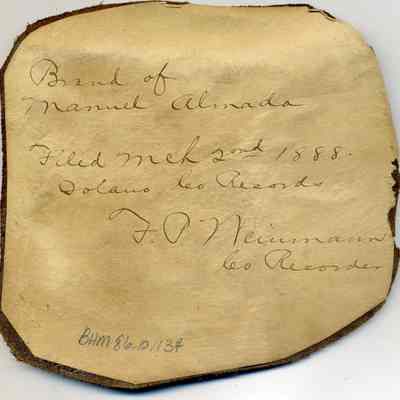 Brand of
Manuel Almada
Filed Mch 2ond 1888.
Solano Co Records
F. P Weinmann
Co Recorder